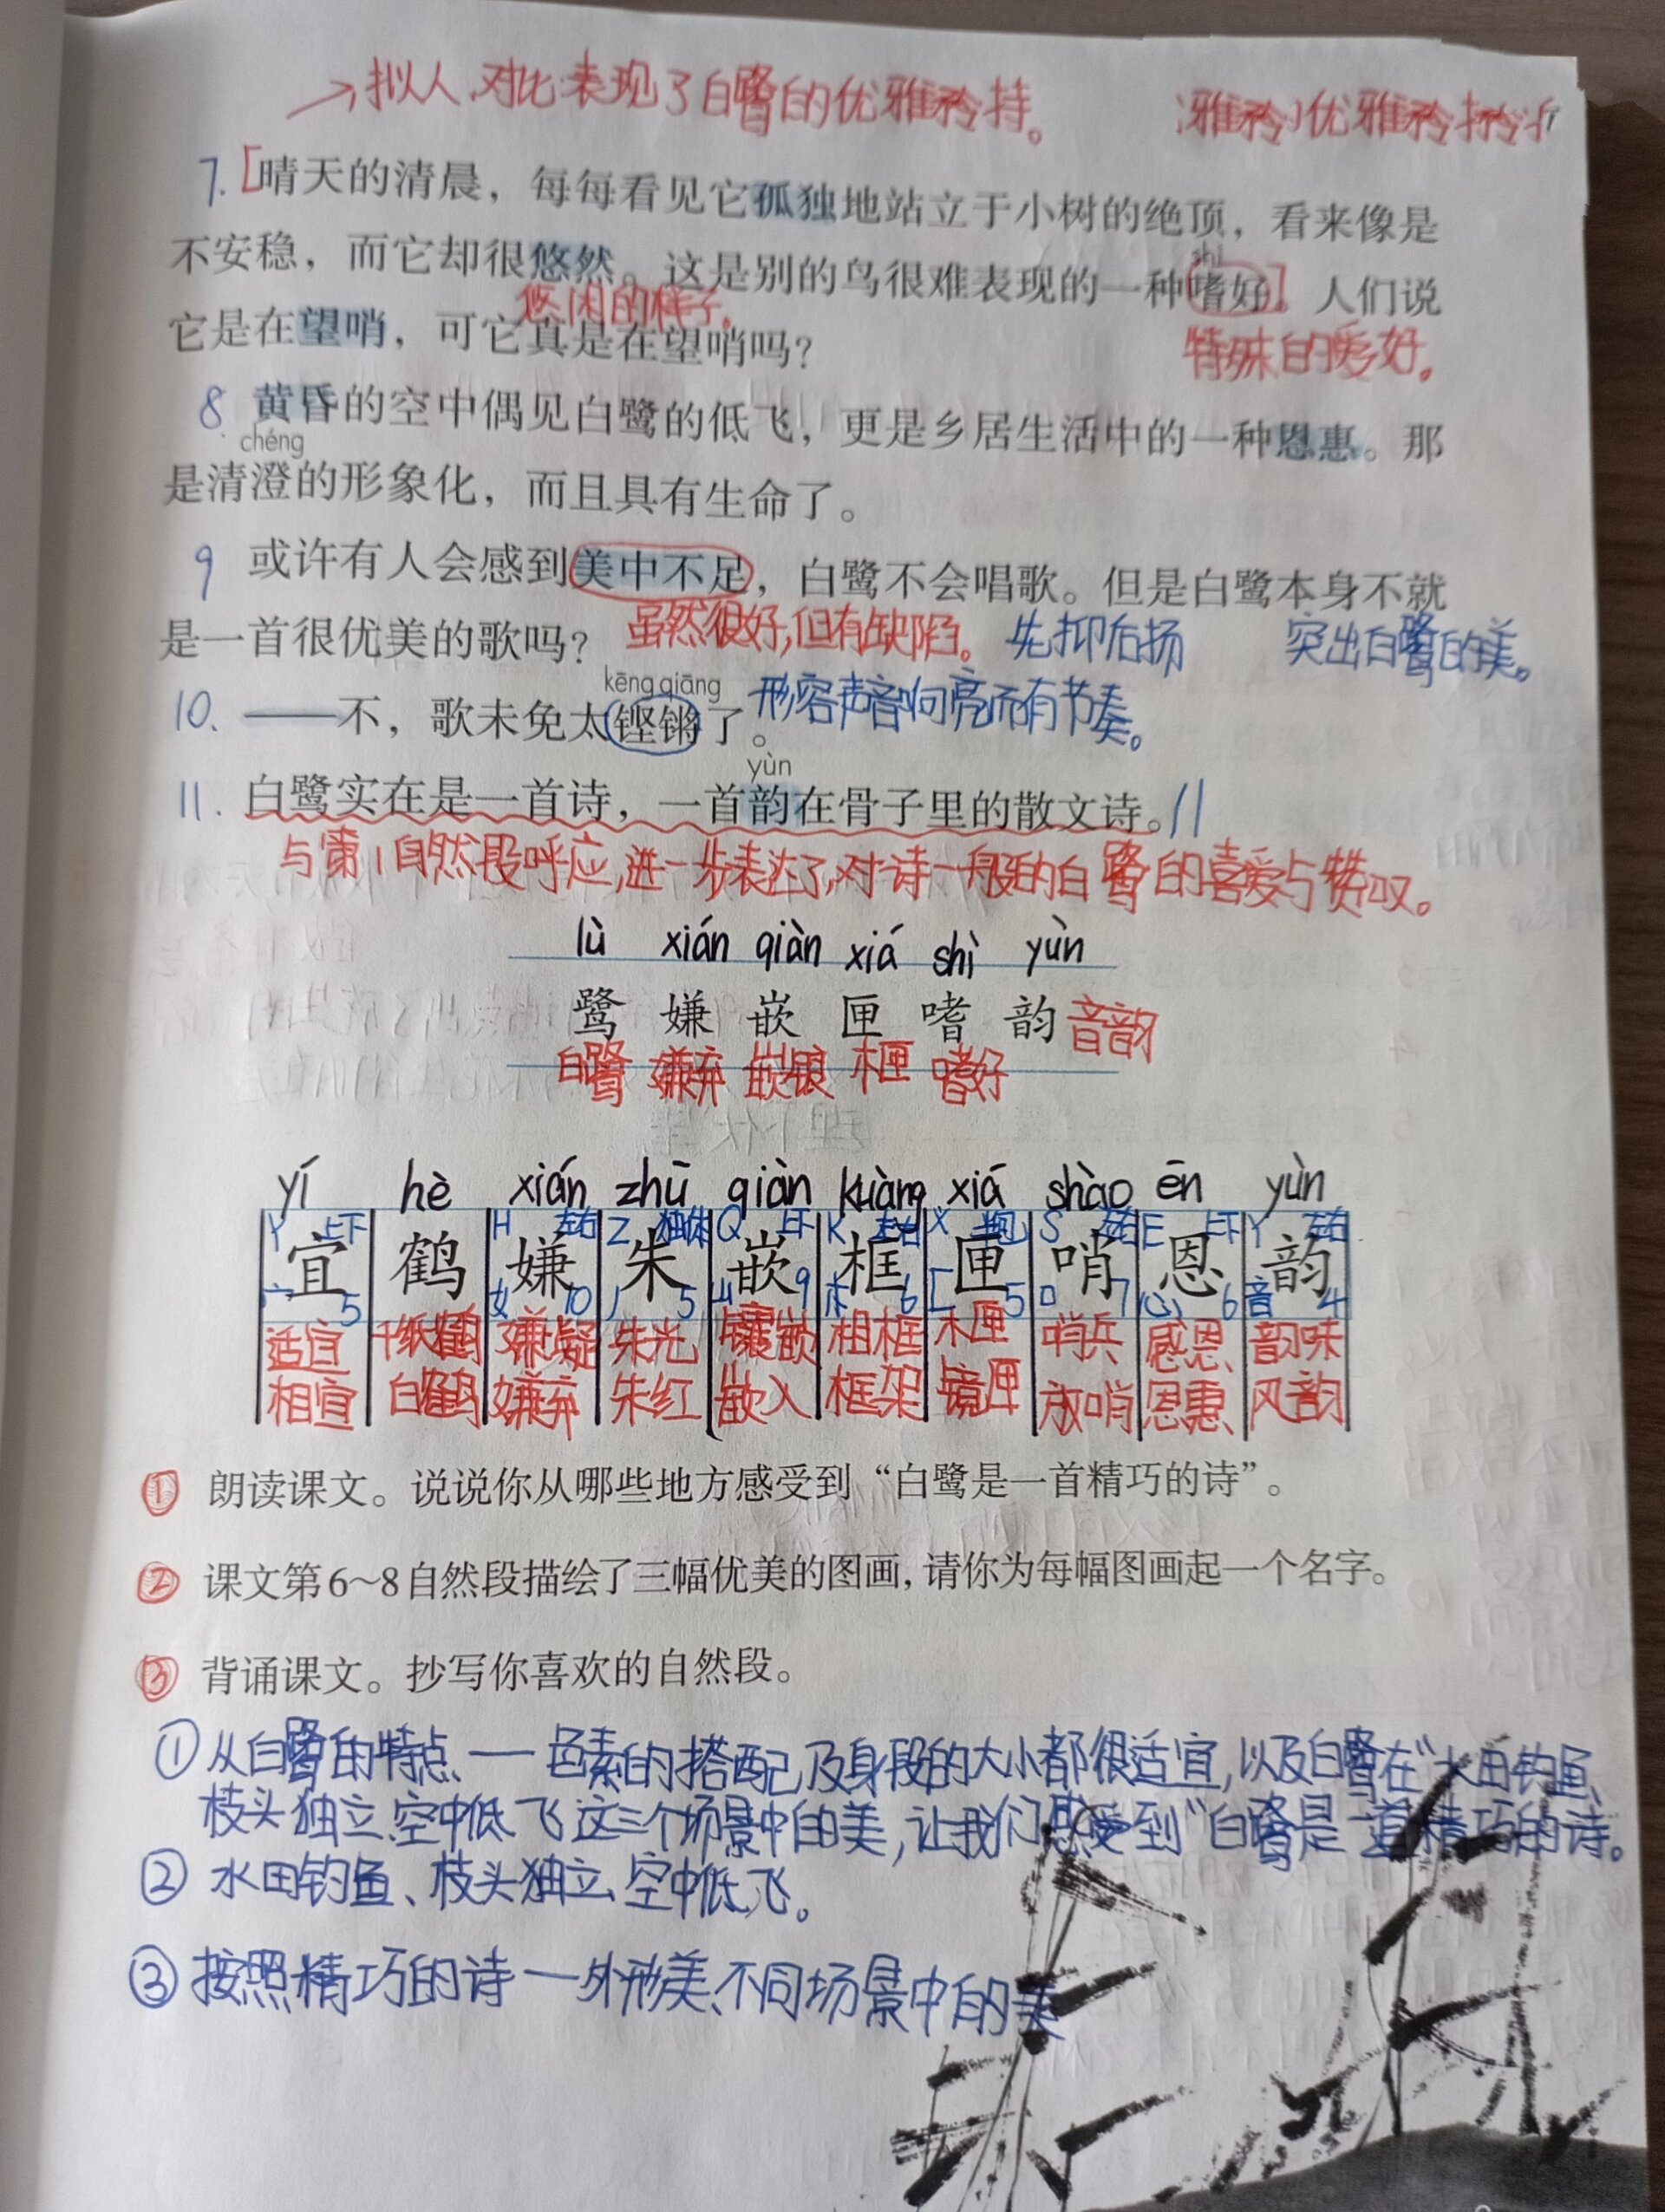 →拟人、对比:表现了白鹭的优雅矜持。
7.[晴天的清晨，每每看见它孤独地站立于小树的绝顶，看来像是
不安稳，而它却很悠然。这是别的鸟很难表现的一种嗜好]。人们说
shì
悠闲的样子。
它是在望哨，可它真是在望哨吗？
特殊的爱好。
8. 黄昏的空中偶见白鹭的低飞，更是乡居生活中的一种恩惠。那
chéng
是清澄的形象化，而且具有生命了。
9 或许有人会感到美中不足，白鹭不会唱歌。但是白鹭本身不就
是一首很优美的歌吗？ 虽然很好,但有缺陷。 先抑后扬 突出白鹭的美。
kēng qiāng
10. ——不，歌未免太铿锵了。 形容声音响亮而有节奏。
yùn
11. 白鹭实在是一首诗，一首韵在骨子里的散文诗。11
与第1自然段呼应,进一步表达了,对诗一般的白鹭的喜爱与赞叹。
lù xián qiàn xiá shì yùn
鹭 嫌 嵌 匣 嗜 韵 音韵
白鹭 嫌弃 嵌银 木匣 嗜好
yí hè xián zhū qiàn kuàng xiá shào ēn yùn
Y 上下 H 左右 Z 独体 Q 上下 K 左右 X S 左右 E 上下 Y 左右
宜 鹤 嫌 朱 嵌 框 匣 哨 恩 韵
宀 5 女 10 丿 5 山 9 木 6 匚 5 口 7 心 6 音 4
适宜 千纸鹤 嫌疑 朱光 镶嵌 相框 木匣 哨兵 感恩 韵味
相宜 白鹤 嫌弃 朱红 嵌入 框架 镜匣 放哨 恩惠 风韵
① 朗读课文。说说你从哪些地方感受到“白鹭是一首精巧的诗”。
② 课文第6～8自然段描绘了三幅优美的图画，请你为每幅图画起一个名字。
③ 背诵课文。抄写你喜欢的自然段。
①从白鹭的特点——色素的搭配,及身段的大小都很适宜,以及白鹭在“水田钓鱼、
枝头独立、空中低飞 这三个场景中的美,让我们感受到“白鹭是一首精巧的诗。
② 水田钓鱼、枝头独立、空中低飞。
③ 按照精巧的诗一外形美、不同场景中的美